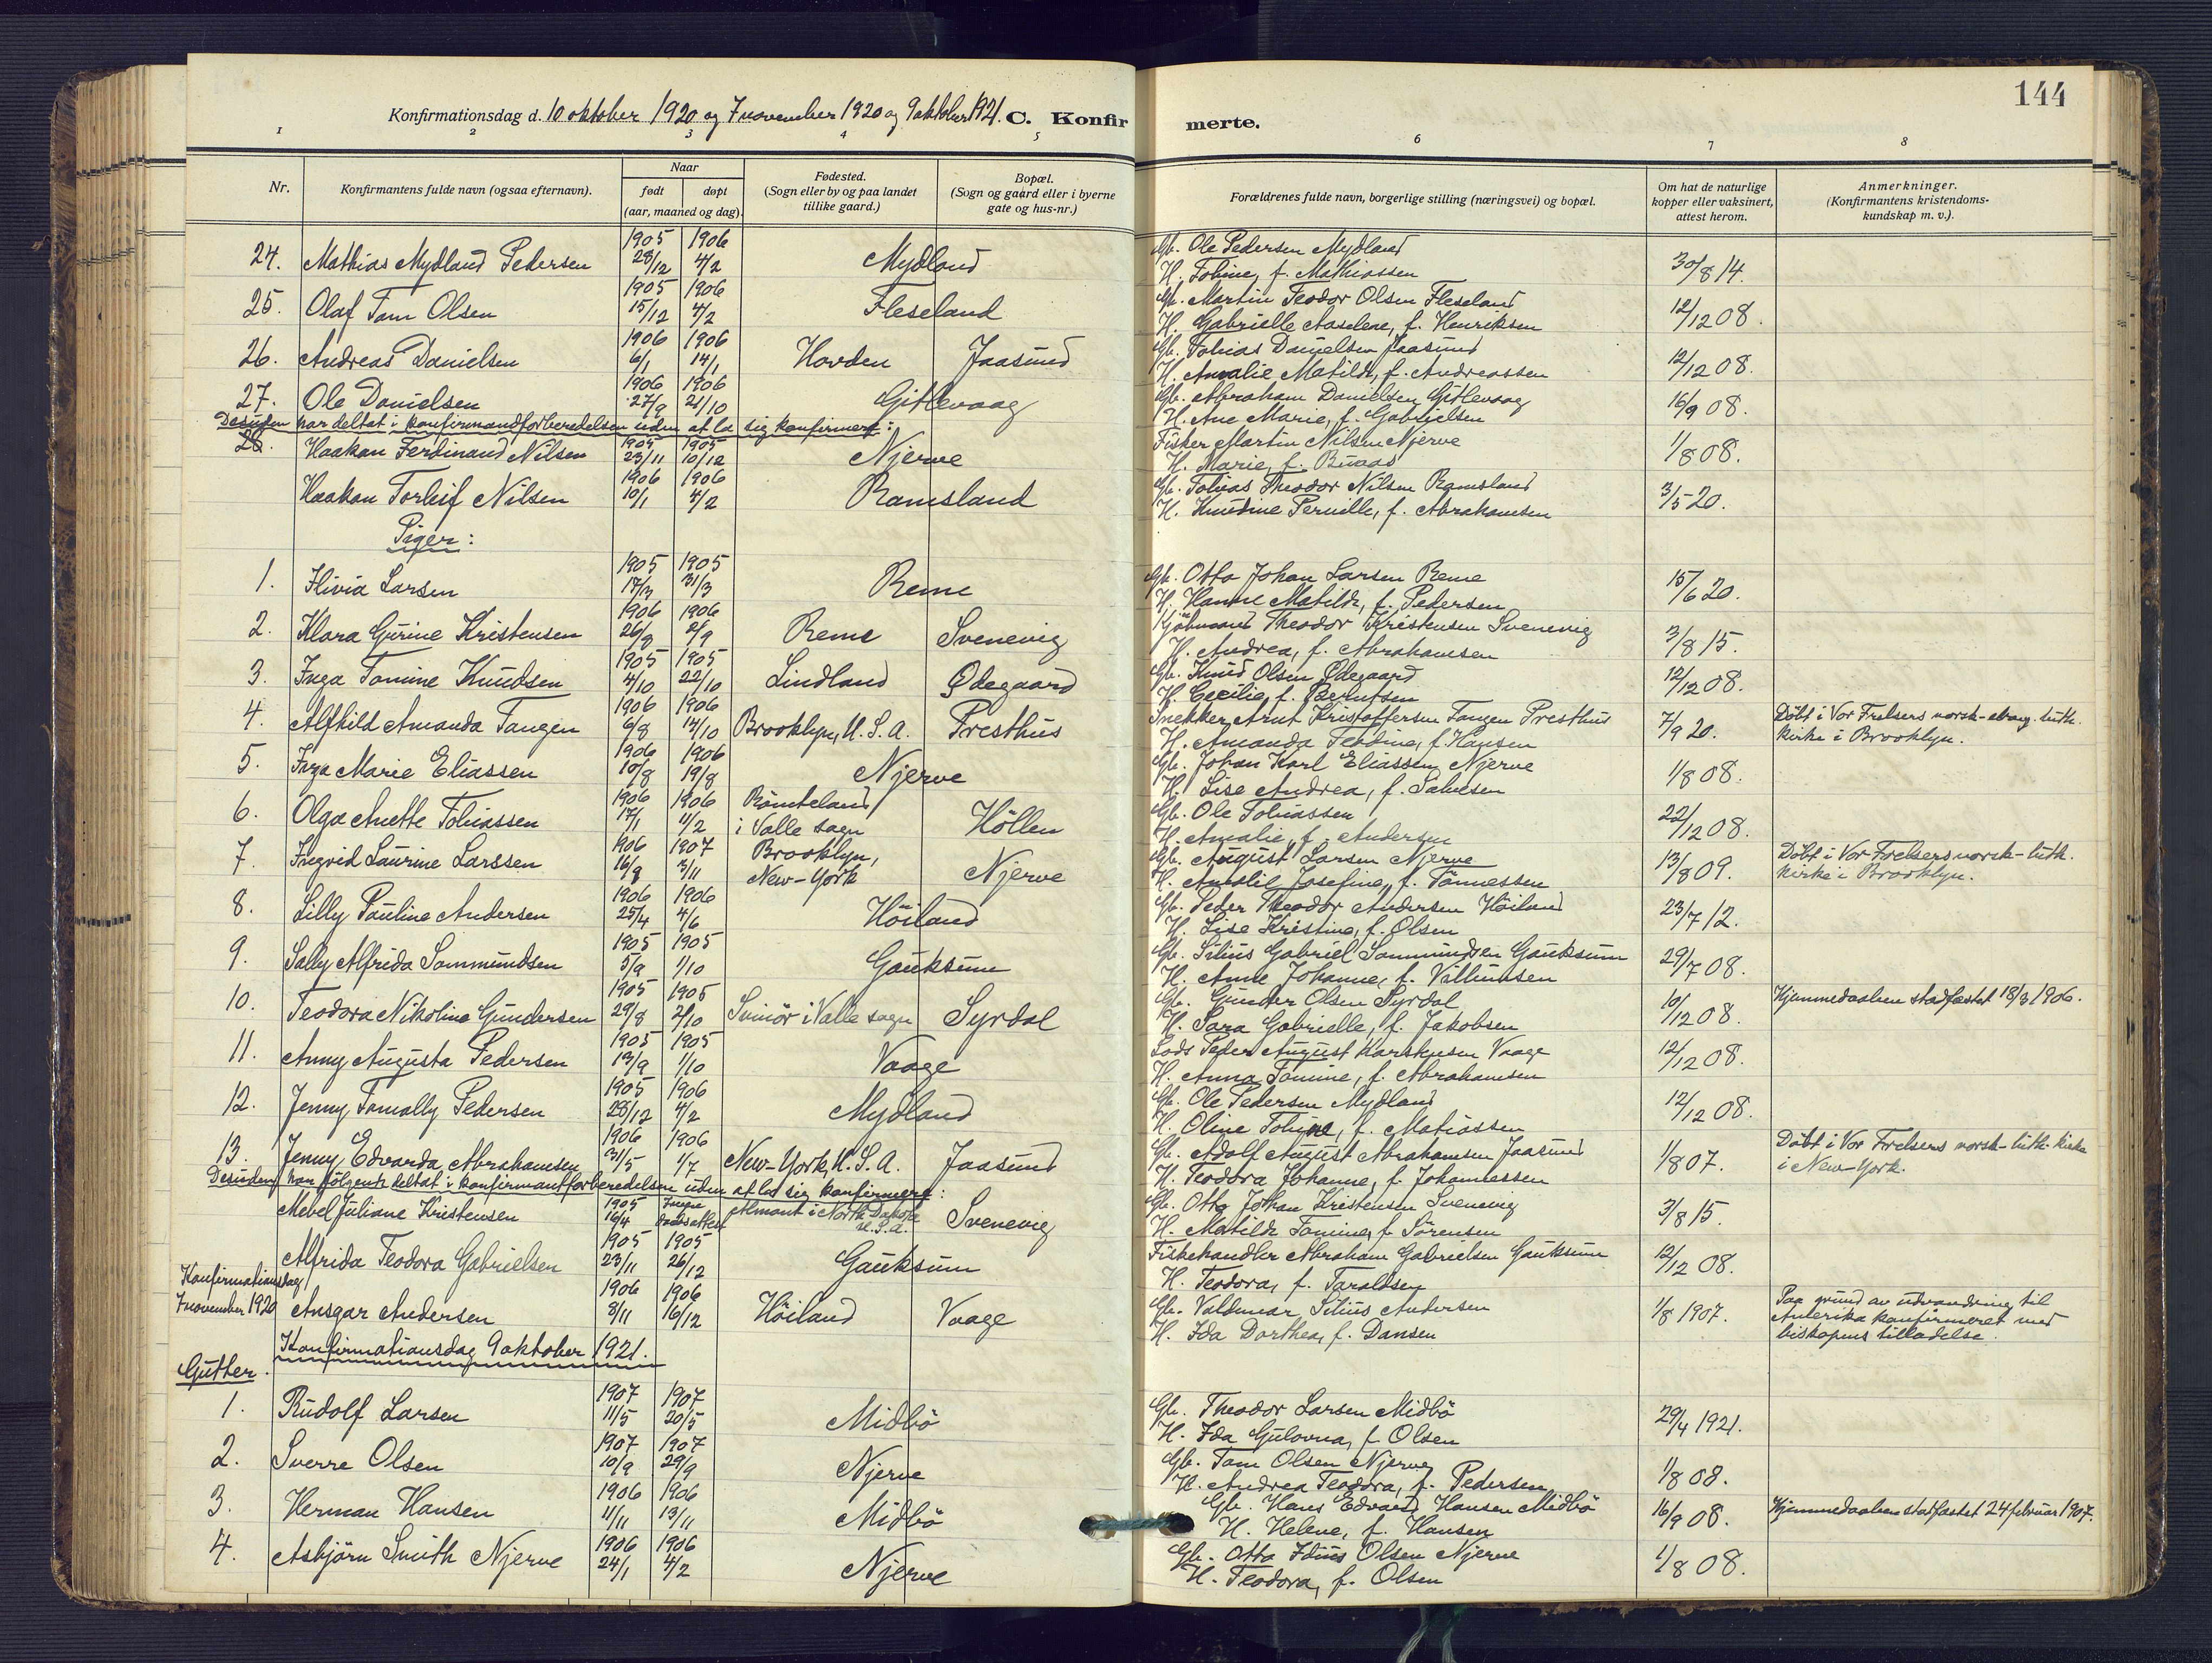 144
Konfirmationsdag d. 10 oktober 1920 og 7 november 1920 og 9 oktober 1921. C. Konfirmerte.
1 2 3 4 5 6 7 8
Nr. Konfirmantens fulde navn (ogsaa efternavn). Naar født døpt (aar, maaned og dag). Fødested. (Sogn eller by og paa landet tillike gaard.) Bopæl. (Sogn og gaard eller i byerne gate og hus-nr.) Forældrenes fulde navn, borgerlige stilling (næringsvei) og bopæl. Om hat de naturlige kopper eller vaksinert, attest herom. Anmerkninger. (Konfirmantens kristendoms-kundskap m. v.).
24. Mathias Mydland Pedersen 1905 28/12 1906 4/2 Mydland Gb. Ole Pedersen Mydland H. Tobine, f. Mathiassen 30/8 14.
25. Olaf Tom Olsen 1905 15/12 1906 4/2 Fleseland Gb. Martin Teodor Olsen Fleseland H. Gabrielle Aaselene, f. Henriksen 12/12 08.
26. Andreas Danielsen 1906 6/1 1906 14/1 Hovden Jaasund Gb. Tobias Danielsen Jaasund H. Amalie Matilde, f. Andreassen 12/12 08.
27. Ole Danielsen 1906 27/9 1906 21/10 Gitlevaag Gb. Abraham Danielsen Gitlevaag H. Ane Marie, f. Gabrielsen 16/9 08.
Desuden har deltat i konfirmandforberedelsen uden at la sig konfirmere:
28. Haakan Ferdinand Nilsen 1905 23/11 1905 10/12 Njerve Fisker Martin Nilsen Njerve H. Marie, f. Buaas 1/8 08.
Haakan Torleif Nilsen 1906 10/1 1906 4/2 Ramsland Gb. Tobias Theodor Nilsen Ramsland H. Knudine Pernille, f. Abrahamsen 3/5 20.
Piger:
1. Flivia Larsen 1905 17/3 1905 31/3 Reme Gb. Otto Johan Larsen Reme H. Hanne Matilde, f. Pedersen 15/6 20.
2. Klara Gurine Kristensen 1906 26/8 1906 2/9 Reme Svenevig Theodor Kristensen Svenevig H. Andrea, f. Abrahamsen 3/8 15.
3. Inga Tomine Knudsen 1905 4/10 1905 22/10 Lindland Ødegaard Gb. Knud Olsen Ødegaard H. Cecilie, f. Berntsen 12/12 08.
4. Alfhild Amanda Tangen 1906 6/8 1906 14/10 Brooklyn, U.S.A. Presthus Snekker Arnt Kristoffersen Tangen Presthus H. Amanda Teodine, f. Hansen 7/9 20. Døbt i Vor Frelsers norsk-evang. luth. kirke i Brooklyn.
5. Inga Marie Eliassen 1906 10/8 1906 19/8 Njerve Gb. Johan Karl Eliassen Njerve H. Lise Andrea, f. Salvesen 1/8 08.
6. Olga Anette Tobiassen 1906 17/1 1906 11/2 Rømteland i Valle sogn Höllen Gb. Ole Tobiassen H. Amalie, f. Andersen 22/12 08.
7. Ingrid Laurine Larssen 1906 16/9 1907 3/11 Brooklyn, New-York Njerve Gb. August Larsen Njerve H. Amalie Josefine, f. Tönnessen 13/8 09. Döbt i Vor Frelsers norsk-luth. kirke i Brooklyn.
8. Lilly Pauline Andersen 1906 25/4 1906 4/6 Höiland Gb. Peder Theodor Andersen Höiland H. Lise Kristine, f. Olsen 23/7 12.
9. Sally Alfrida Sommundsen 1905 5/9 1905 1/10 Gauksum Gb. Silius Gabriel Sommundsen Gauksum H. Anne Johanne, f. Villumsen 29/7 08.
10. Teodora Nikoline Gundersen 1905 29/8 1905 2/10 Svinör i Valle sogn Syrdal Gb. Gunder Olsen Syrdal H. Sara Gabrielle, f. Jakobsen 10/12 08. Hjemmedaaben stadfæstet 18/3 1906.
11. Anny Augusta Pedersen 1905 13/9 1905 1/10 Vaage Lods Peder August Karstensen Vaage H. Anna Tomine, f. Abrahamsen 12/12 08.
12. Jenny Tomally Pedersen 1905 28/12 1906 4/2 Mydland Gb. Ole Pedersen Mydland H. Oline Tobine, f. Matiassen 12/12 08.
13. Jenny Edvarda Abrahamsen 1906 31/5 1906 1/7 New-York, U.S.A. Jaasund Gb. Adolf August Abrahamsen Jaasund H. Teodora Johanne, f. Johannessen 1/8 07. Döbt i Vor Frelsers norsk-luth. kirke i New-York.
Desuden har følgende deltat i konfirmantforberedelsen uden at la sig konfirmere:
Mebel Juliane Kristensen 1905 16/4 Ingen daabsattest Almont i North Dakota U.S.A. Svenevig Gb. Otto Johan Kristensen Svenevig H. Matilde Tomine, f. Sörensen 3/8 15.
Alfrida Teodora Gabrielsen 1905 23/11 1905 26/12 Gauksum Fiskehandler Abraham Gabrielsen Gauksum H. Teodora, f. Taraldsen 12/12 08.
Konfirmationsdag 7 november 1920 Ansgar Andersen 1906 8/11 1906 16/12 Höiland Vaage Gb. Valdemar Silius Andersen H. Ida Dorthea, f. Dansen 1/8 1907. Paa grund av udvandring til Amerika konfirmeret med biskopens tilladelse.
Konfirmationsdag 9 oktober 1921.
Gutter.
1. Rudolf Larsen 1907 11/5 1907 20/5 Midbö Gb. Theodor Larsen Midbö H. Ida Gulovna, f. Olsen 29/4 1921.
2. Sverre Olsen 1907 10/9 1907 29/9 Njerve Gb. Tom Olsen Njerve H. Andrea Teodora, f. Pedersen 1/8 08.
3. Herman Hansen 1906 11/11 1906 13/11 Midbö Gb. Hans Edvard Hansen Midbö H. Helene, f. Hansen 16/9 08. Hjemmedaaben stadfæstet 24 februar 1907.
4. Asbjörn Smith Njerve 1906 24/1 1906 4/2 Njerve Gb. Otto Idius Olsen Njerve H. Teodora, f. Olsen 1/8 08.